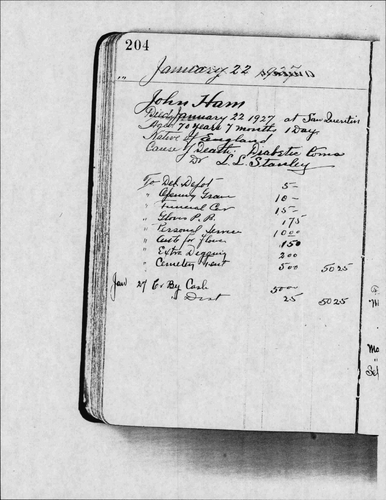 204
January 22
John Ham
Died January 22 1927 at San Quentin
Aged 70 years 7 months 1 Day
Native of England
Cause of Death Diabetic Coma
Dr L L Stanley
To Del. Depot 5-
" Opening Grave 10-
" Funeral Car 15-
" Gloves P. B. 175
" Personal Service 1000
" Auto for 150
" Extra Digging 200
" Cemetery 500 5025
Jan 27 Cr By Cash 5000
" Dist 25 5025
Mo